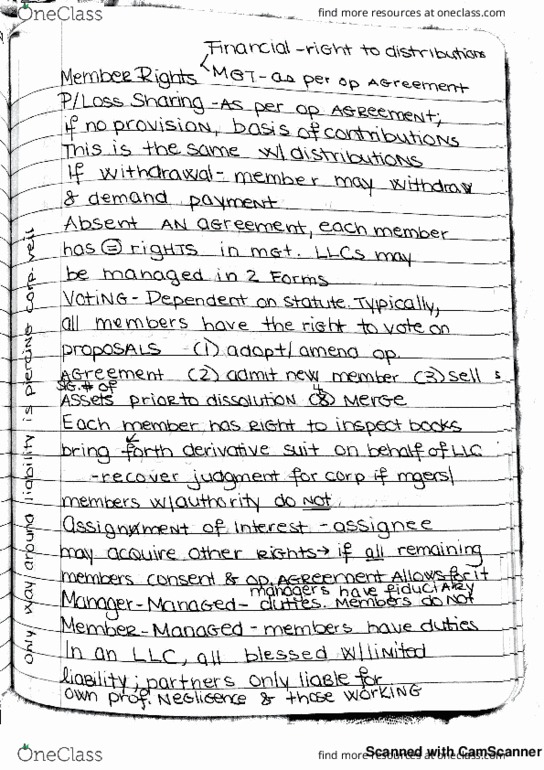 OneClass
find more resources at oneclass.com
Financial - right to distributions
Member Rights
MGT - as per op Agreement
P/Loss Sharing - As per op Agreement;
if no provision, basis of contributions
This is the same w/ distributions
If withdrawal - member may withdraw
& demand payment
Absent AN agreement, each member
has = rights in mgt. LLCs may
be managed in 2 Forms
Voting - Dependent on statute. Typically,
all members have the right to vote on
proposals - (1) adopt/amend op.
Agreement (2) admit new member (3) sell
sig. # of
Assets prior to dissolution (4) Merge
Each member has right to inspect books
bring forth derivative suit on behalf of LLC
- recover judgment for corp if mgers/
members w/authority do NOT
Assignment of interest - assignee
may acquire other Rights → if all remaining
members consent & op. Agreement Allows for it
managers have fiduciary
Manager-Managed - duties. Members do NOT
Member-Managed - members have duties
In an LLC, all blessed w/limited
liability; partners only liable for
own prof. Negligence & those working
only way around liability is piercing corp. veil
OneClass
find more resources at oneclass.com
Scanned with CamScanner